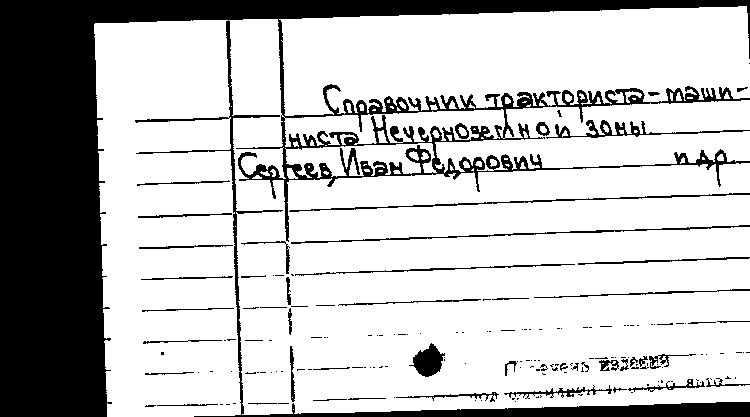 Справочник тракториста-маши-
ниста Нечерноземной зоны
Сергеев, Иван Федорович и др
издания